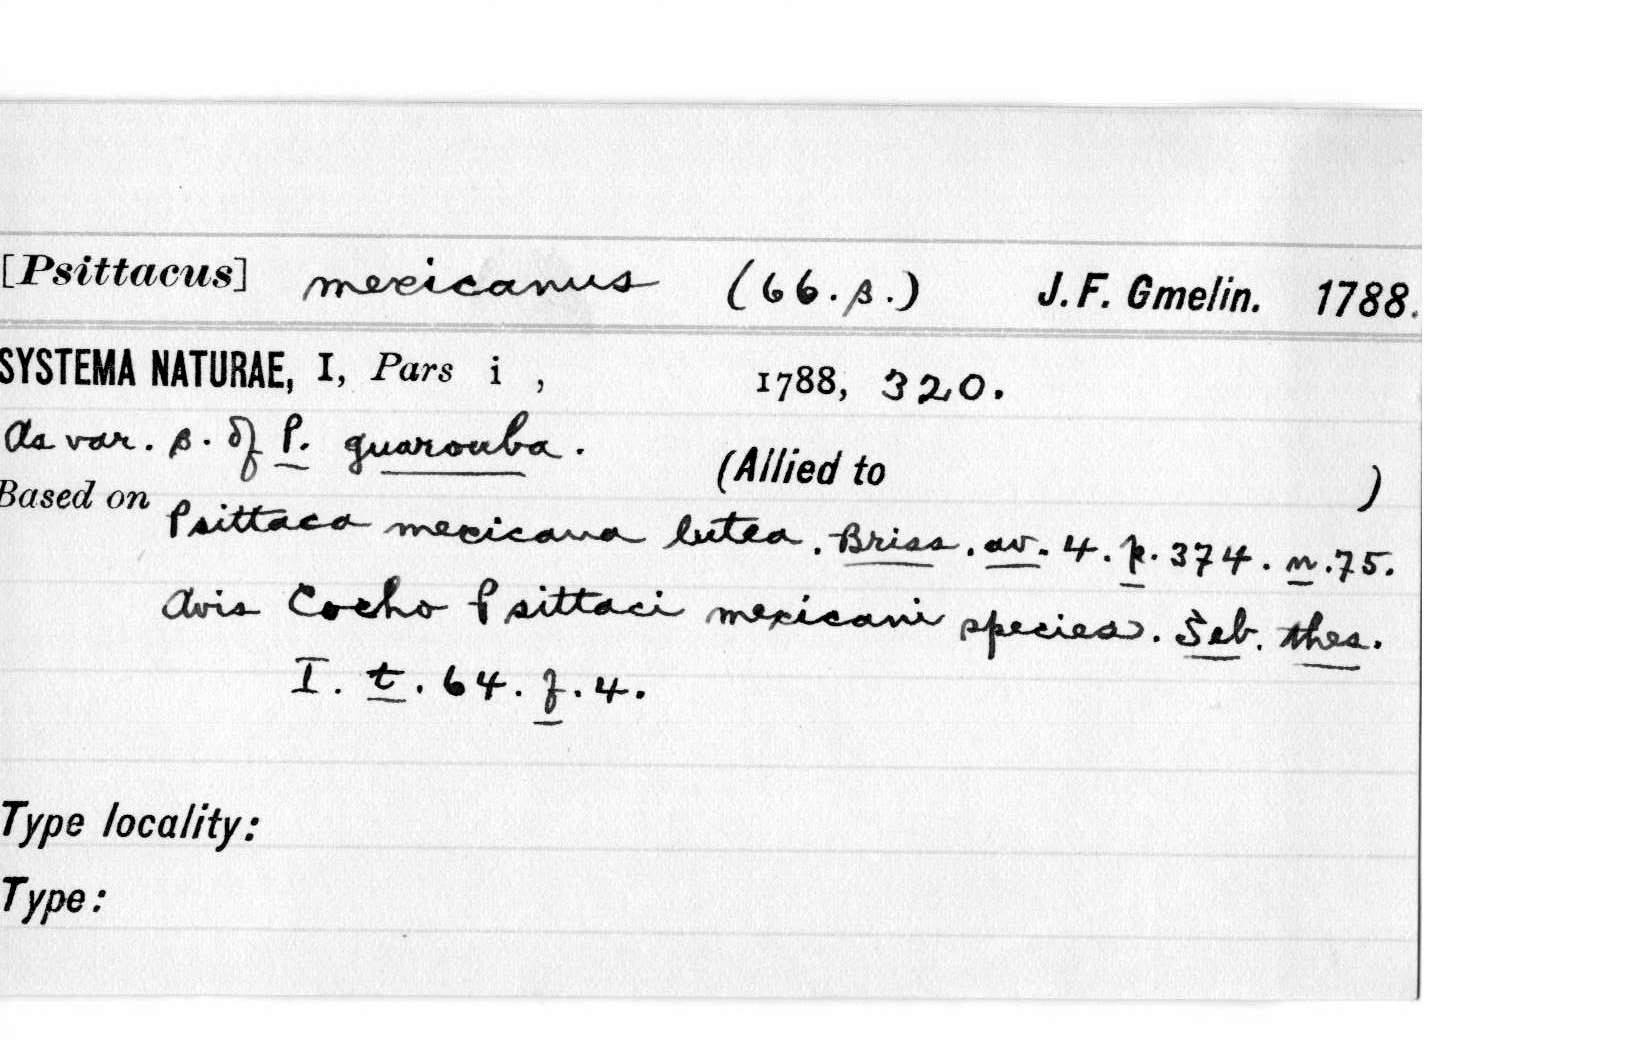 [Psittacus] mexicanus (66.β.) J. F. Gmelin. 1788.
SYSTEMA NATURAE, I, Pars i , 1788, 320.
As var. β. of P. guarouba. (Allied to )
Based on Psittaca mexicana lutea. Briss. av. 4. p. 374. n. 75.
Avis Cocho Psittaci mexicani species. Seb. thes.
I. t. 64. f. 4.
Type locality:
Type: